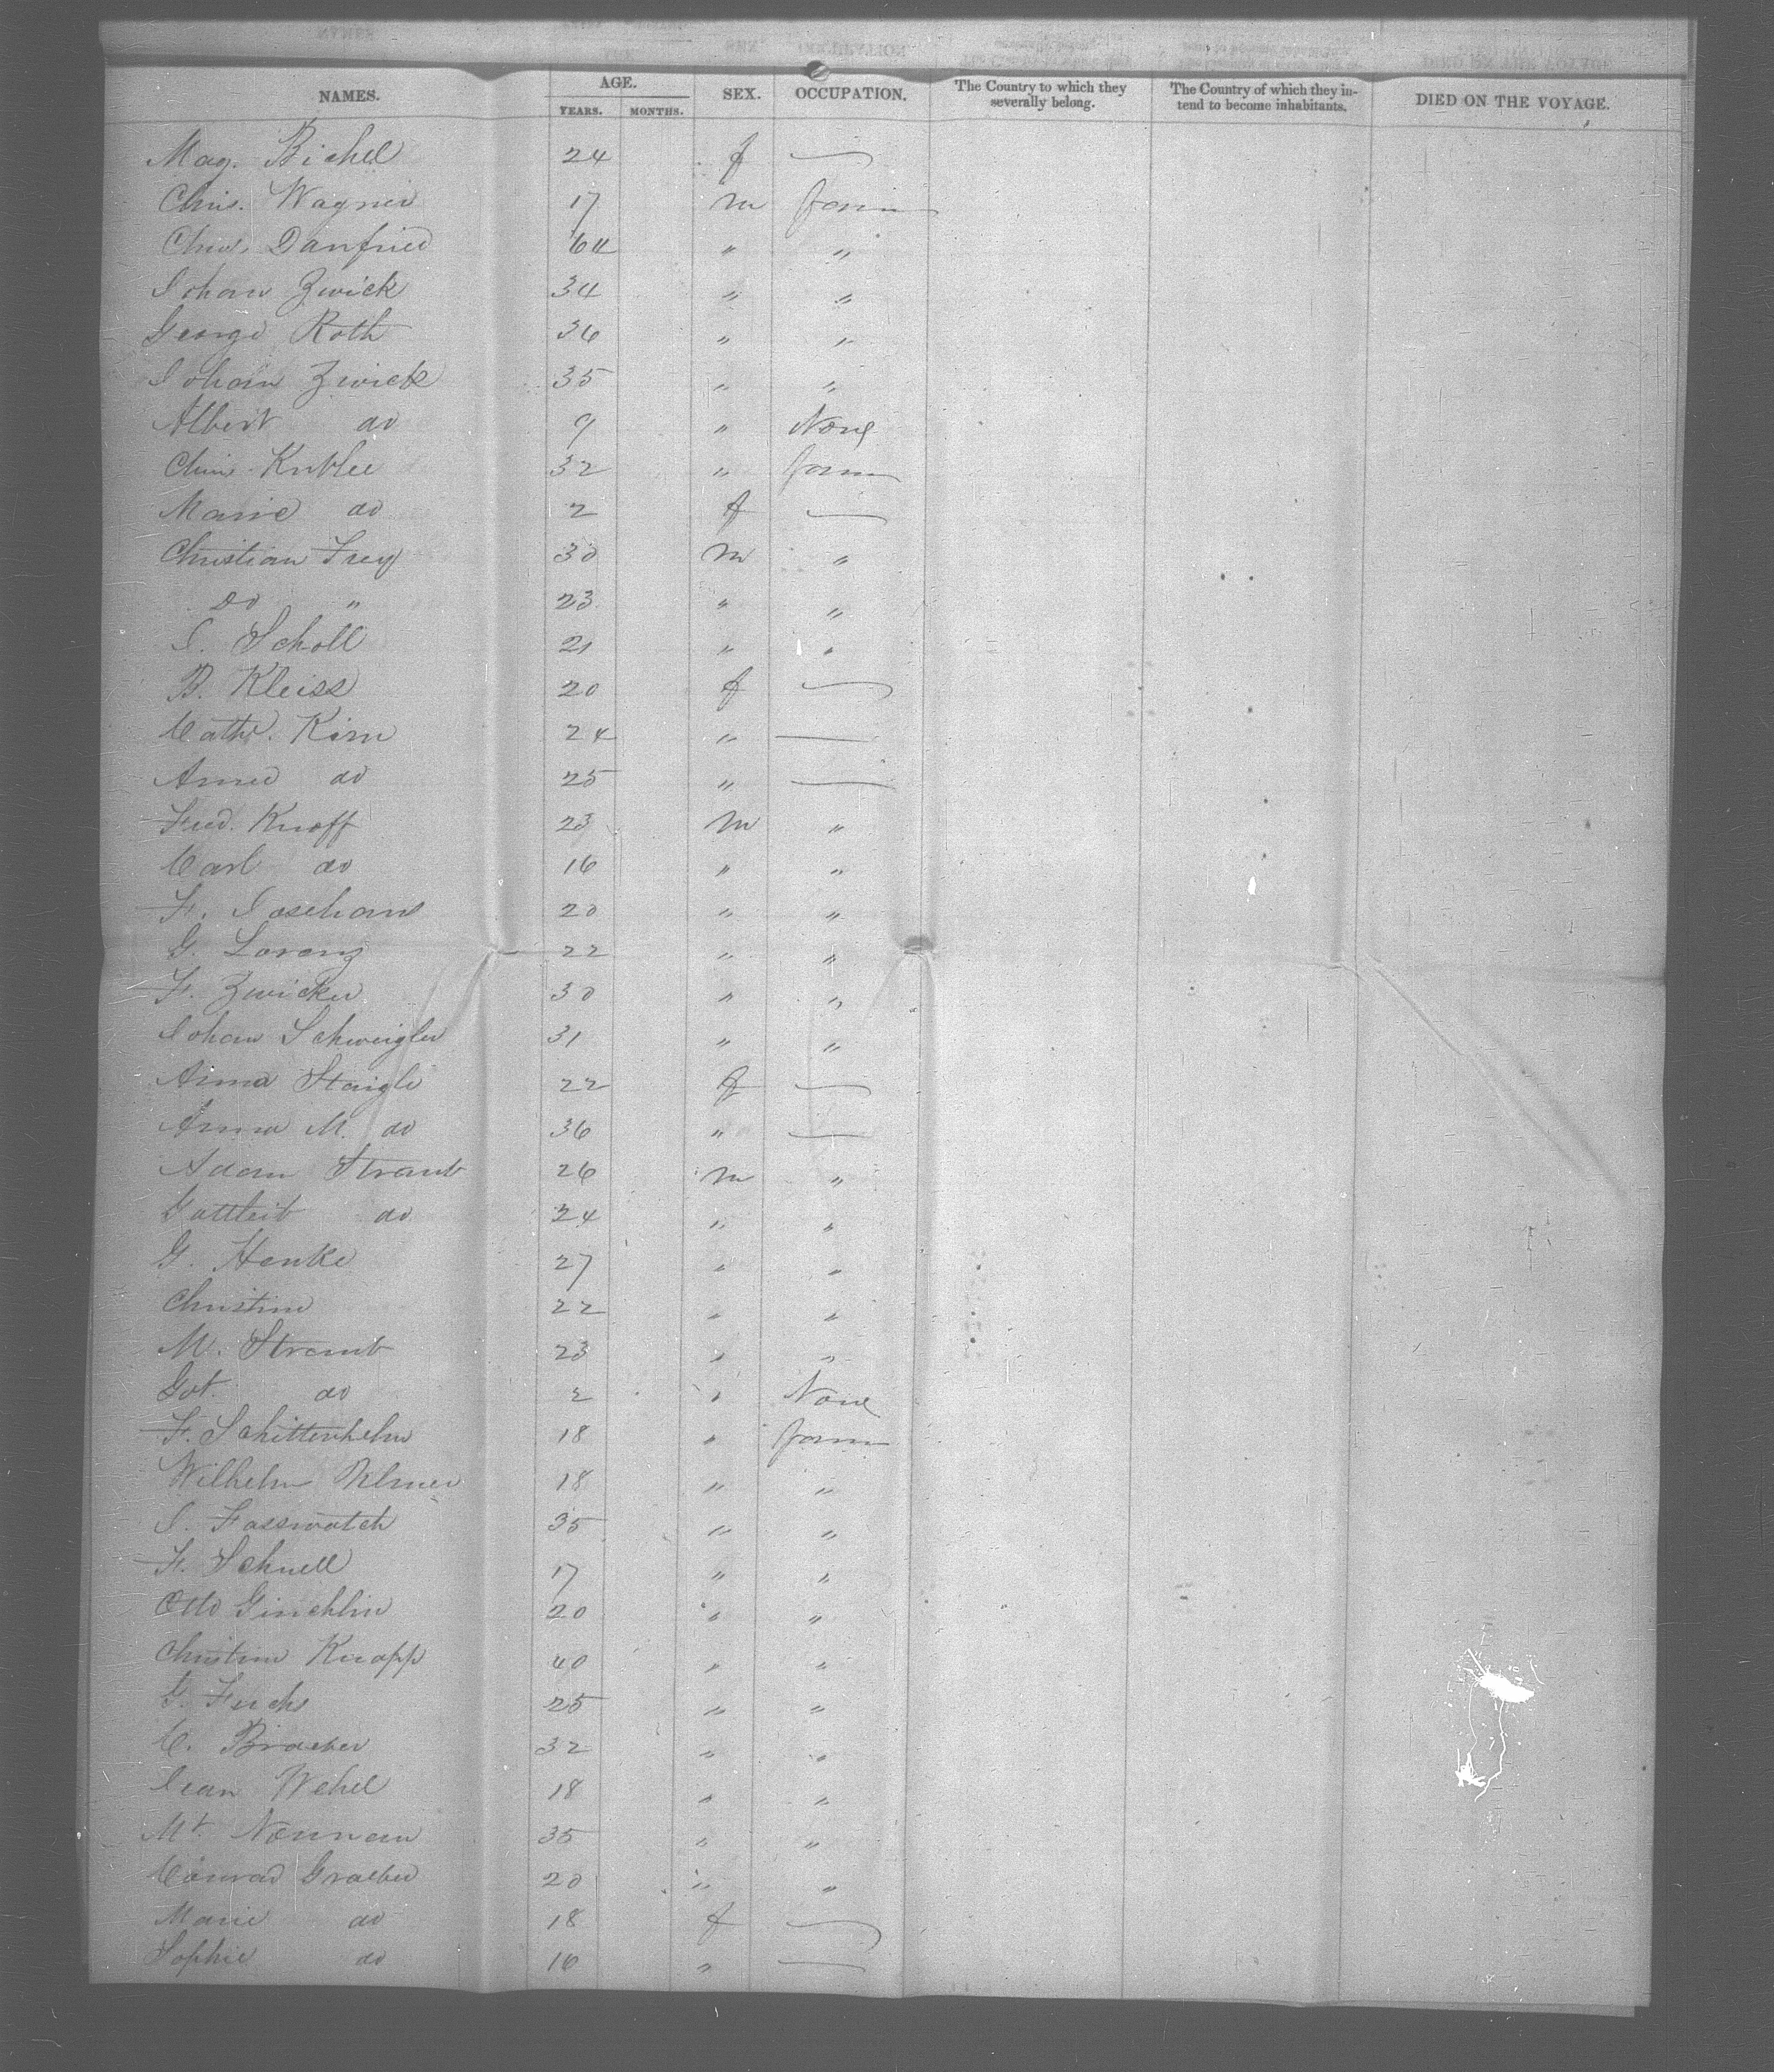 NAMES. AGE. YEARS. MONTHS. SEX. OCCUPATION. The Country to which they severally belong. The Country of which they intend to become inhabitants. DIED ON THE VOYAGE.
Mag. Bichel 24 f —
Chris. Wagner 17 m farm
Chris. Danfried 64 " "
Johan Zwick 34 " "
George Roth 36 " "
Johan Zwick 35 " "
Albert do 9 " None
Chris. Kublee 32 " farm
Marie do 2 f —
Christian Frey 30 m "
Do " 23 " "
J. Scholl 21 " "
B. Kleiss 20 f —
Cath. Kirn 24 " —
Anna do 25 " —
Fred. Knoff 23 m "
Carl do 16 " "
F. Josehans 20 " "
G. Lorenz 22 " "
F. Zwicker 30 " "
Johan Schweigler 31 " "
Anna Staigle 22 f —
Anna M. do 36 " —
Adam Straub 26 m "
Gottleib do 24 " "
G. Henke 27 " "
Christine 22 " "
M. Straub 23 " "
Got. do 2 " None
F. Schittenhelm 18 " farm
Wilhelm Ulmer 18 " "
J. Fasswatch 35 " "
F. Schnell 17 " "
Otto Ginchlin 20 " "
Christine Knapp 40 " "
G. Fuchs 25 " "
C. Braeber 32 " "
Jean Wehel 18 " "
Mt. Nonnam 35 " "
Conrad Graeber 20 " "
Marie do 18 f —
Sophie do 16 " —